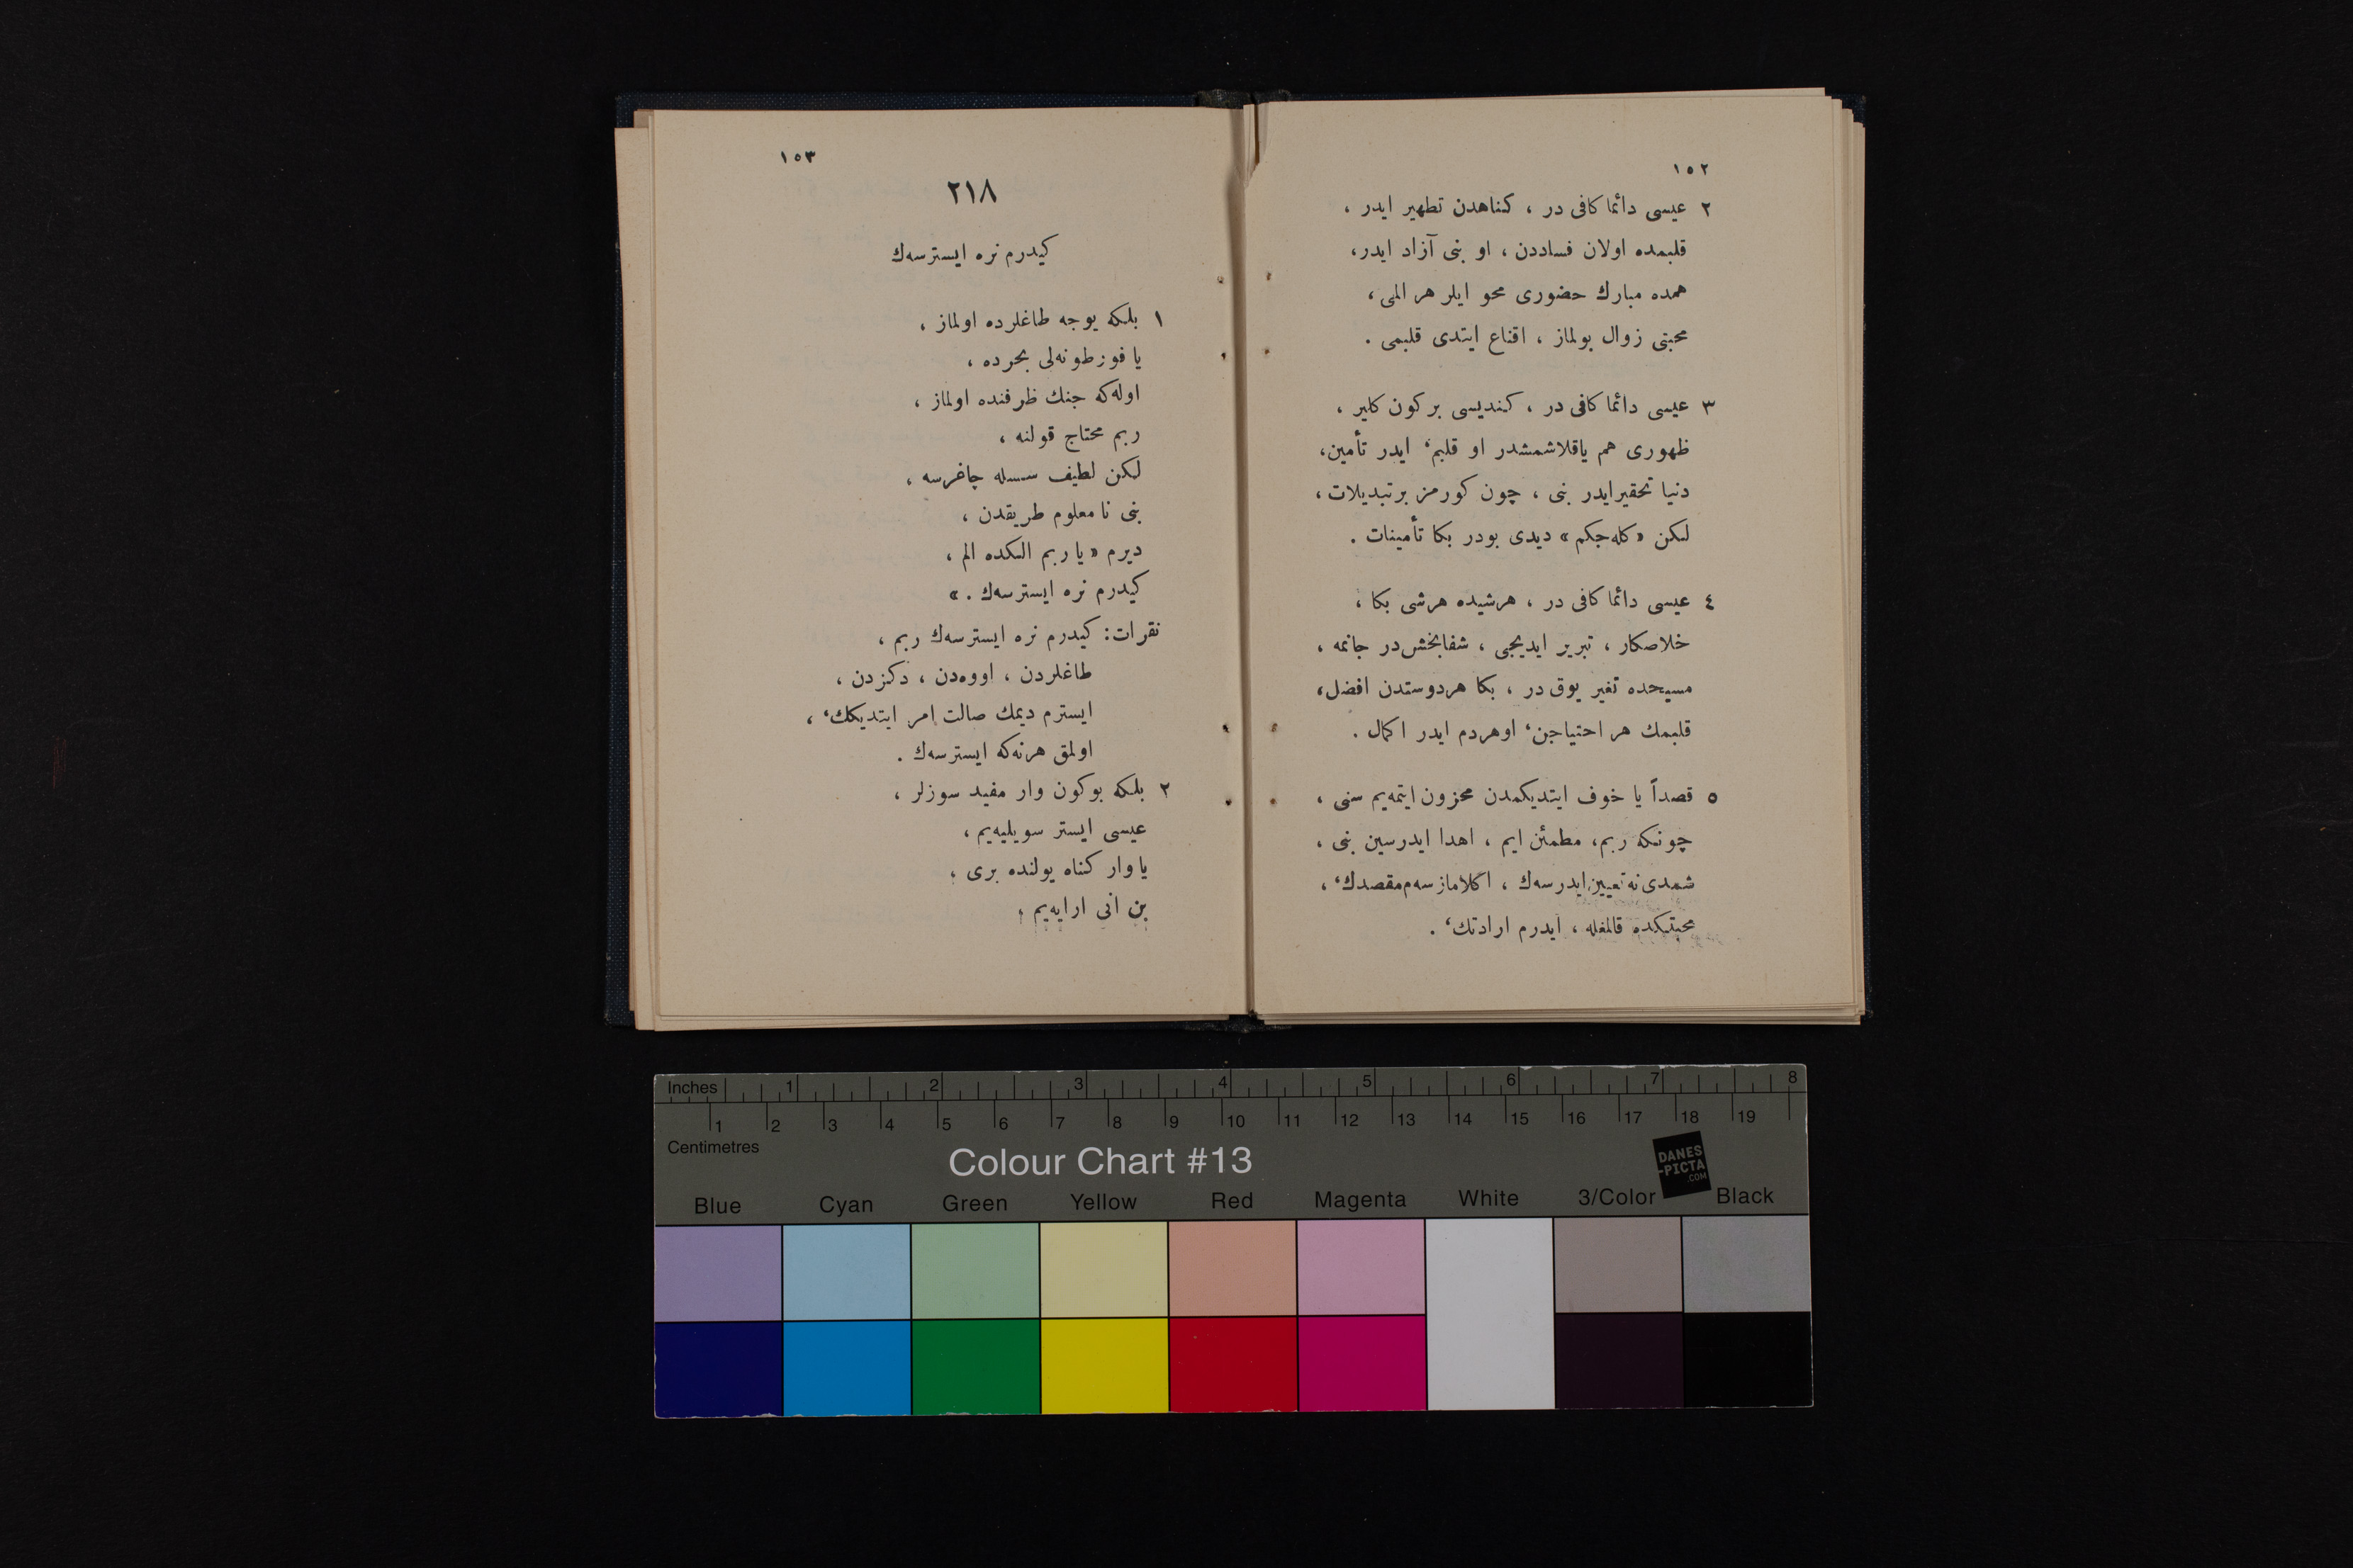 ١٥٢
٢ عيسى دائما كافى در ، كناهدن تطهير ايدر ،
قلبمده اولان فساددن ، او بنى آزاد ايدر،
همده مبارك حضورى محو ايلر هر المى ،
محبتى زوال بولماز ، اقناع ايتدى قلبمى .
٣ عيسى دائما كافى در ، كنديسى بر كون كلير ،
ظهورى هم ياقلاشمشدر او قلبمʻ ايدر تأمين،
دنيا تحقيرايدر بنى ، چون كورمز برتبديلات ،
لىكن «كله‌جكم» ديدى بودر بكا تأمينات .
٤ عيسى دائما كافى در ، هرشيده هرشى بكا ،
خلاصكار ، تبرير ايديجى ، شفابخش‌در جانمه ،
مسيحده تغير يوق در ، بكا هردوستدن افضل،
قلبمك هر احتياجنʻ اوهردم ايدر اكمال .
٥ قصداً يا خوف ايتديكمدن محزون ايتمه‌يم سنى ،
چونكه ربم، مطمئن ايم ، اهدا ايدرسين بنى ،
شمدى نه تعيين ايدرسه‌ك ، اكلامازسه‌م مقصدكʻ ،
محبتكده قالمغله ، ايدرم ارادتكʻ .
١٥٣
٢١٨
كيدرم نره ايسترسه‌ك
١ بلكه يوجه طاغلرده اولماز ،
يا فورطونه‌لى بحرده ،
اوله‌كه جنك ظرفنده اولماز ،
ربم محتاج قولنه ،
لكن لطيف سسله چاغرسه ،
بنى نا معلوم طريقدن ،
ديرم «يا ربم الكده الم ،
كيدرم نره ايسترسه‌ك .»
نقرات: كيدرم نره ايسترسه‌ك ربم ،
طاغلردن ، اووه‌دن ، دكزدن ،
ايسترم ديمك صالت امر ايتديككʻ ،
اولمق هرنه‌كه ايسترسه‌ك .
٢ بلكه بوكون وار مفيد سوزلر ،
عيسى ايستر سويليه‌يم ،
يا وار كناه يولنده برى ،
بن انى ارايه‌يم ،
Inches 1 2 3 4 5 6 7 8
1 2 3 4 5 6 7 8 9 10 11 12 13 14 15 16 17 18 19
Centimetres
Colour Chart #13
DANES
-PICTA
.COM
Blue Cyan Green Yellow Red Magenta White 3/Color Black